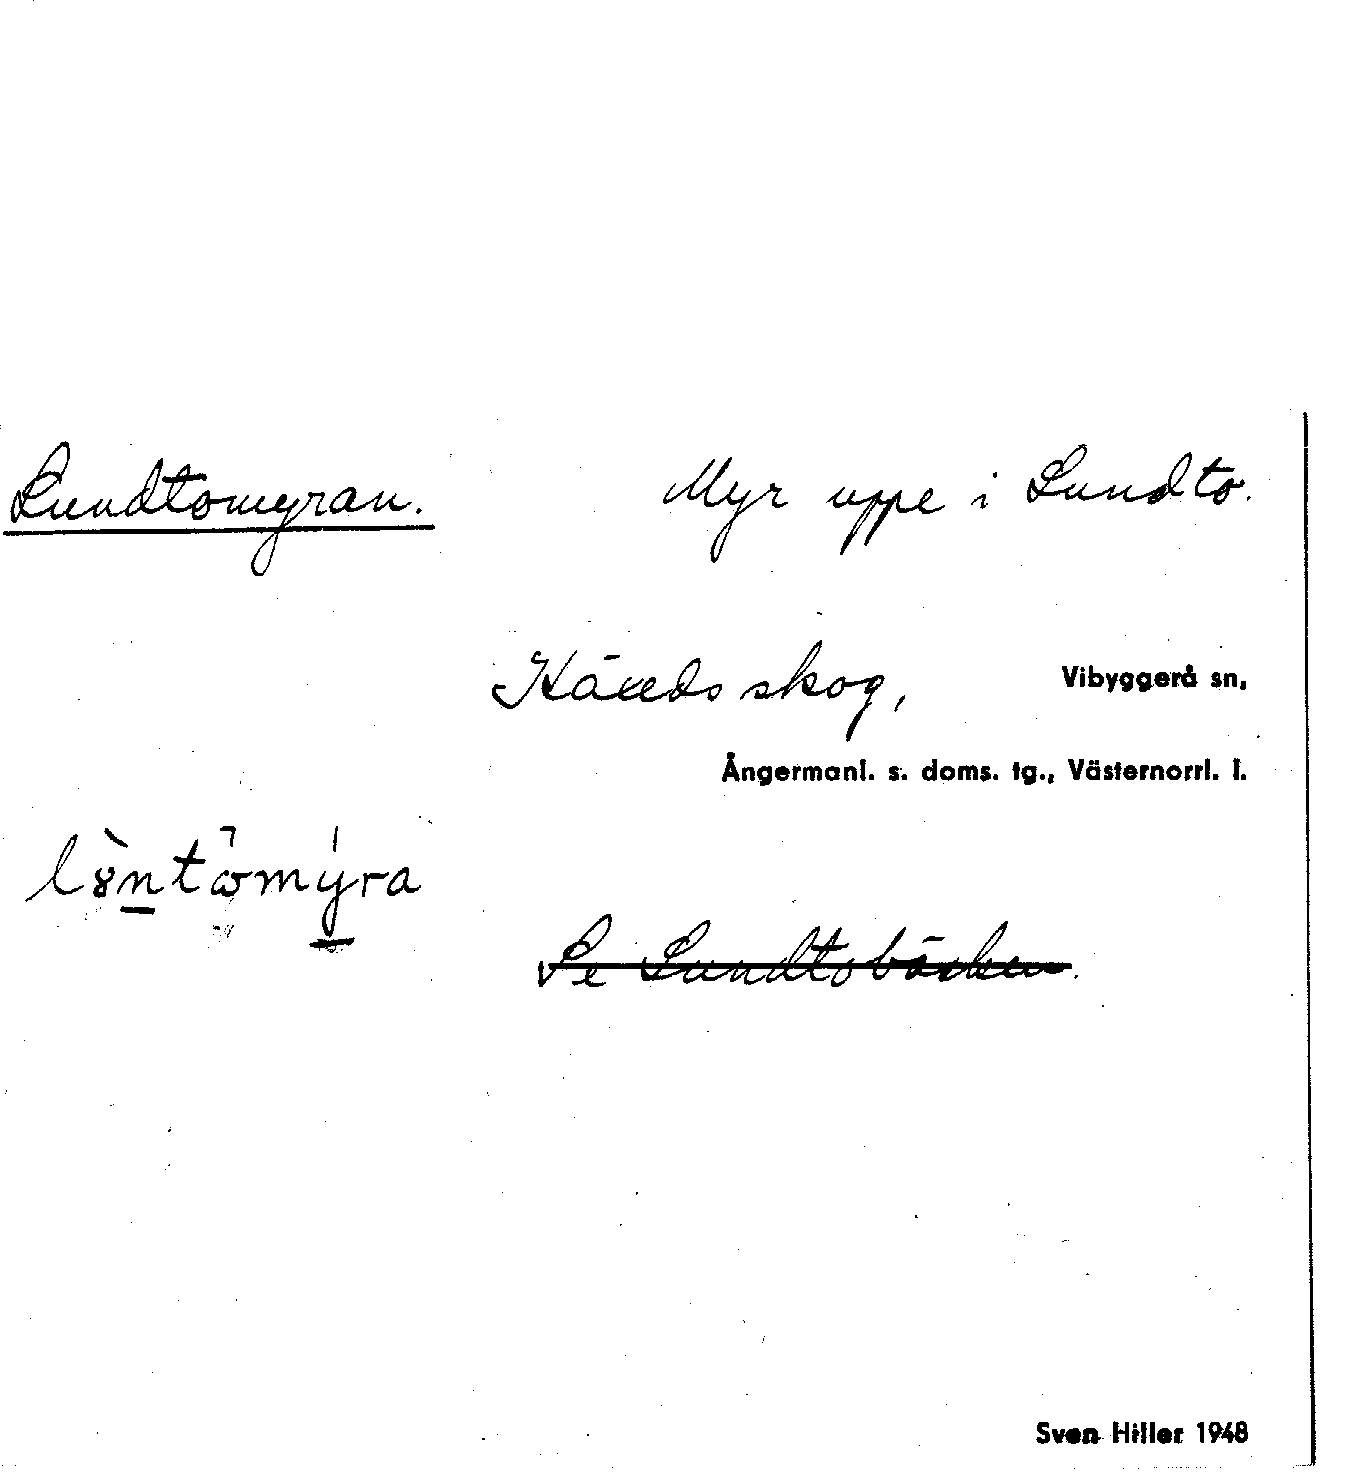 Lundtomyran.
Myr uppe i Lundto.
Händskog,
Vibyggerå sn,
Ångermanl. s. doms. tg., Västernorrl. l.
Se Lundtobäcken.
Sven Hiller 1948